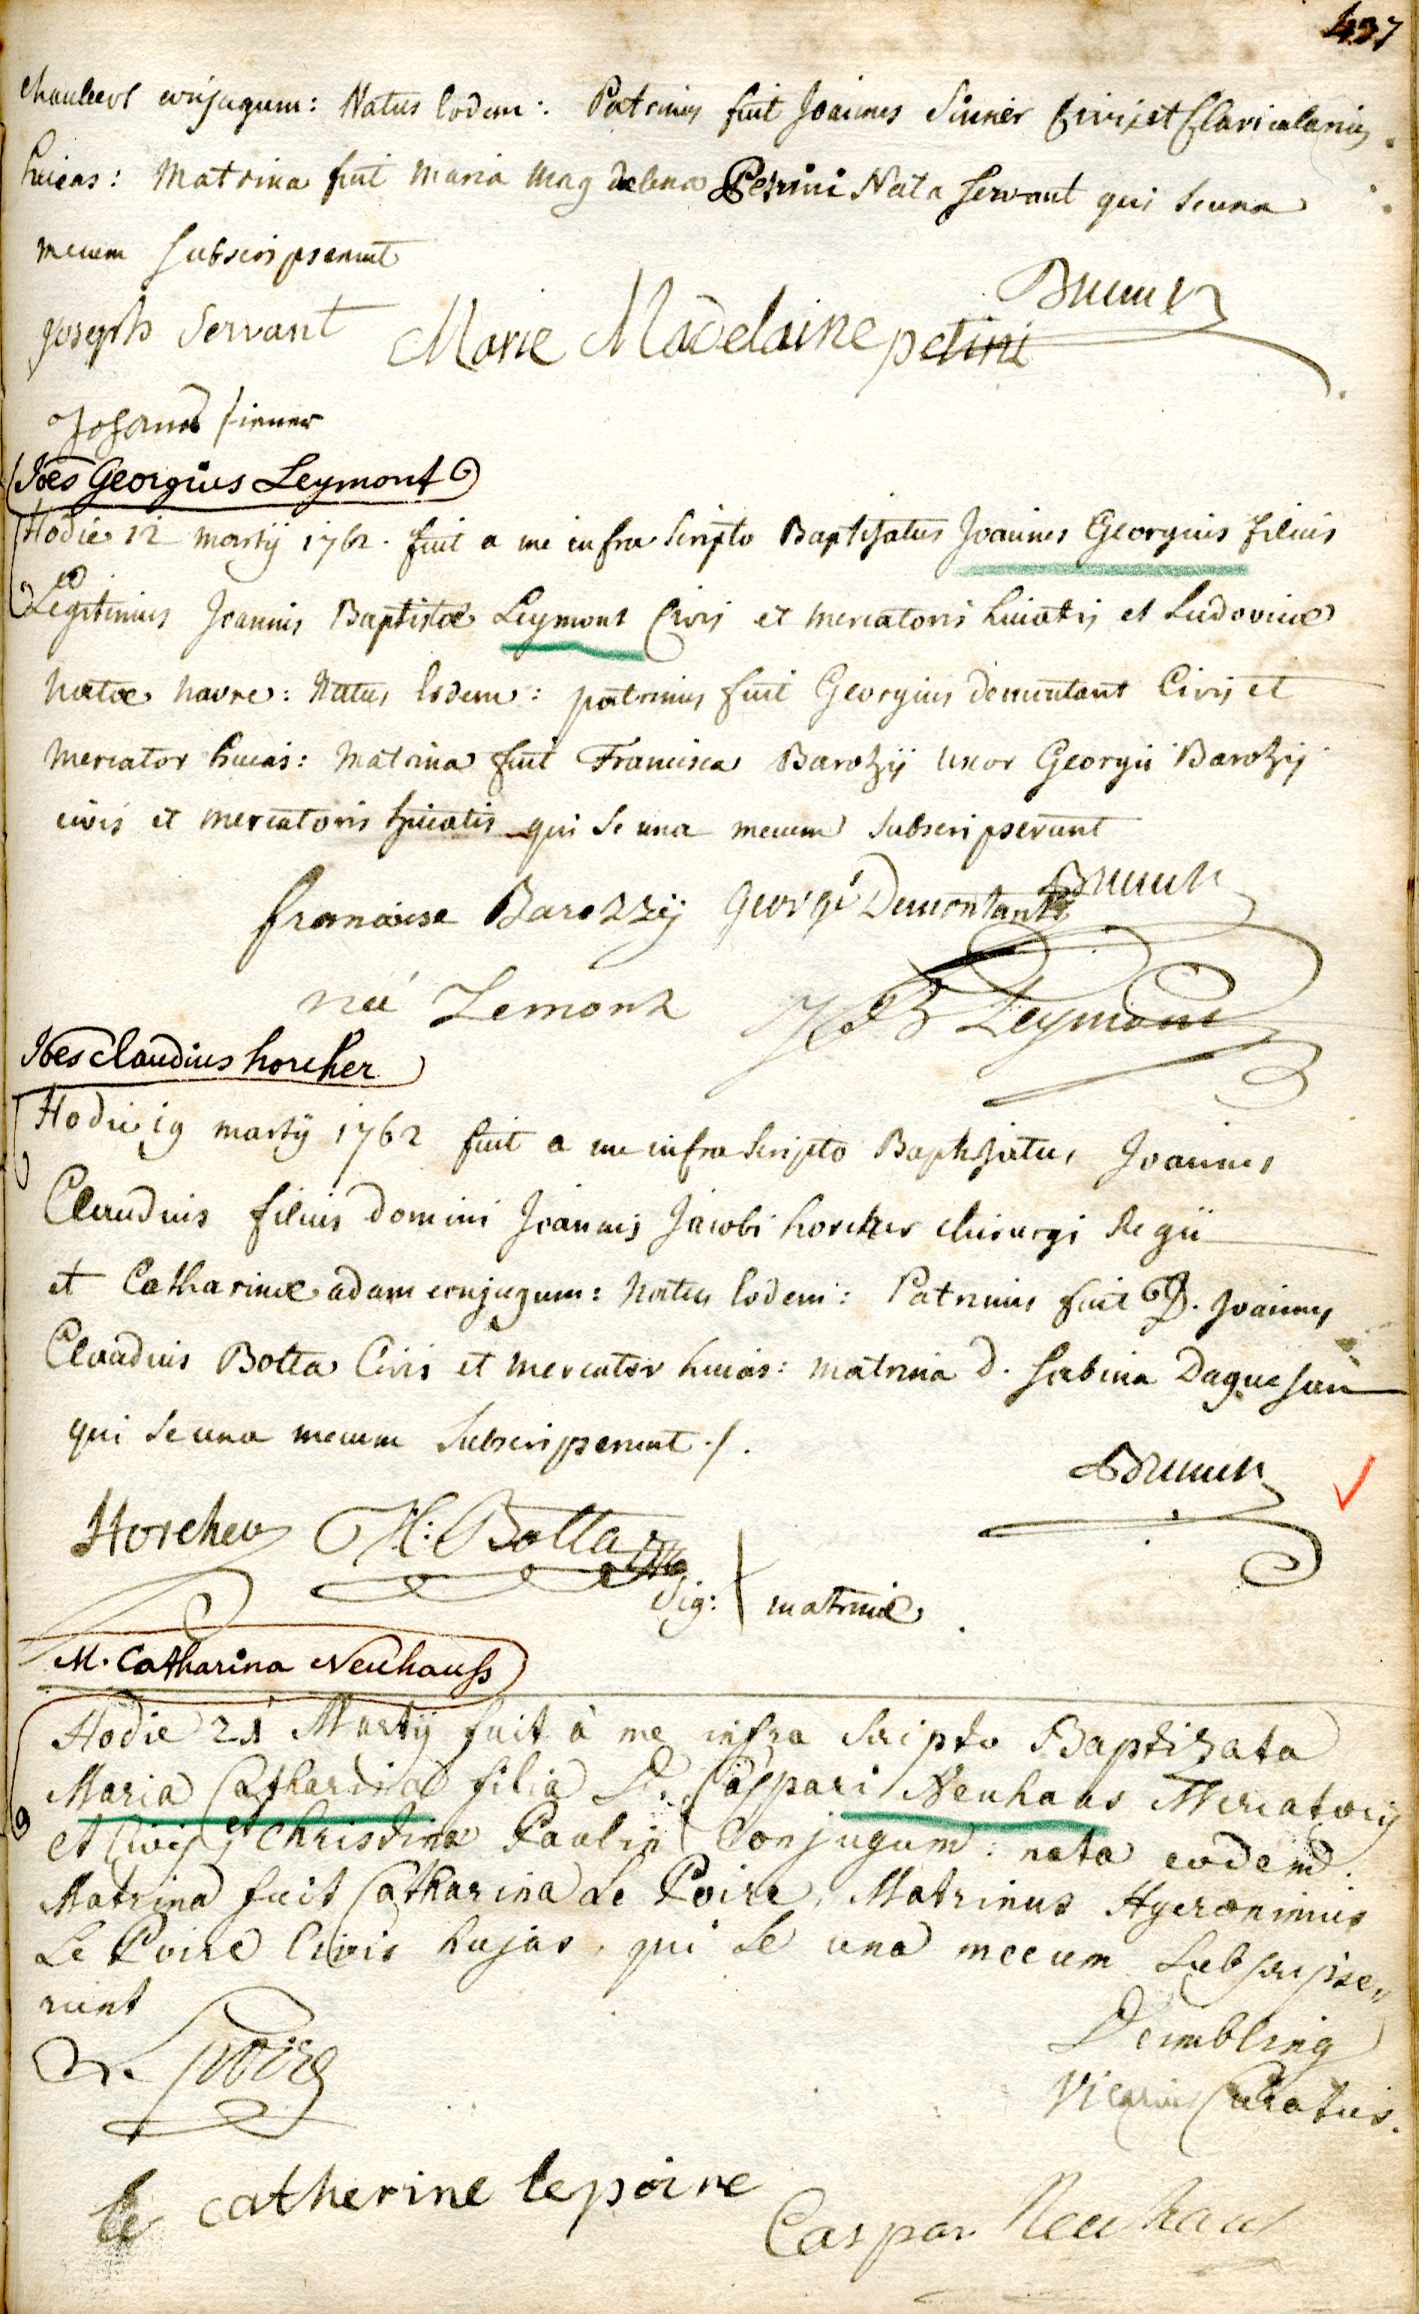 437
conjugum: Natus Eodem: Patrinus fuit Joannes Sinner Civis et Clavicularius
huias: Matrina fuit Maria Magdalena Petrini Nata Servant qui se una
mecum subscripserunt
Joseph Servant Marie Madelaine petini
Johannes sinner
Joes Georgius Leymont
Hodie 12 martij 1762. fuit a me infra scripto Baptisatus Joannes Georgius filius
Legitimus Joannis Baptistæ Leymont Civis et mercatoris huiatis et Ludovicæ
natæ havre: Natus Eodem: patrinus fuit Georgius demontant Civis et
mercator huias: Matrina fuit Francisca Barozij Uxor Georgii Barozij
civis et mercatoris huiatis qui se una mecum subscripserunt
francoise Barozzij George Demontant
neé Lemont J B Leymont
Joes Claudius horcher
Hodie 19 martij 1762 fuit a me infra scripto Baptisatus Joannes
Claudius filius domini Joannis Jacobi horcher chirurgi Regii
et Catharinæ adam conjugum: Natus Eodem: Patrinus fuit D. Joannes
Claudius Botta Civis et mercator huias: matrina d. Sabina Daguesan
qui se una mecum subscripserunt ./.
Horcher Botta
Sig: matrinæ
M. Catharina Neuhauss
Hodie 21 Martij fuit à me infra scripto Baptizata
Maria Catharina filia D. Caspari Neuhaus Mercatoris
et Civis et Christinæ Paulin Conjugum: nata eodem.
Matrina fuit Catharina Le Poire, Matrinus Hyeronimus
Le Poire Civis hujas, qui se una mecum subscripse„
runt
Dembling
Vicarius Curatus.
le catherine lepoire
Caspar Neuhaus